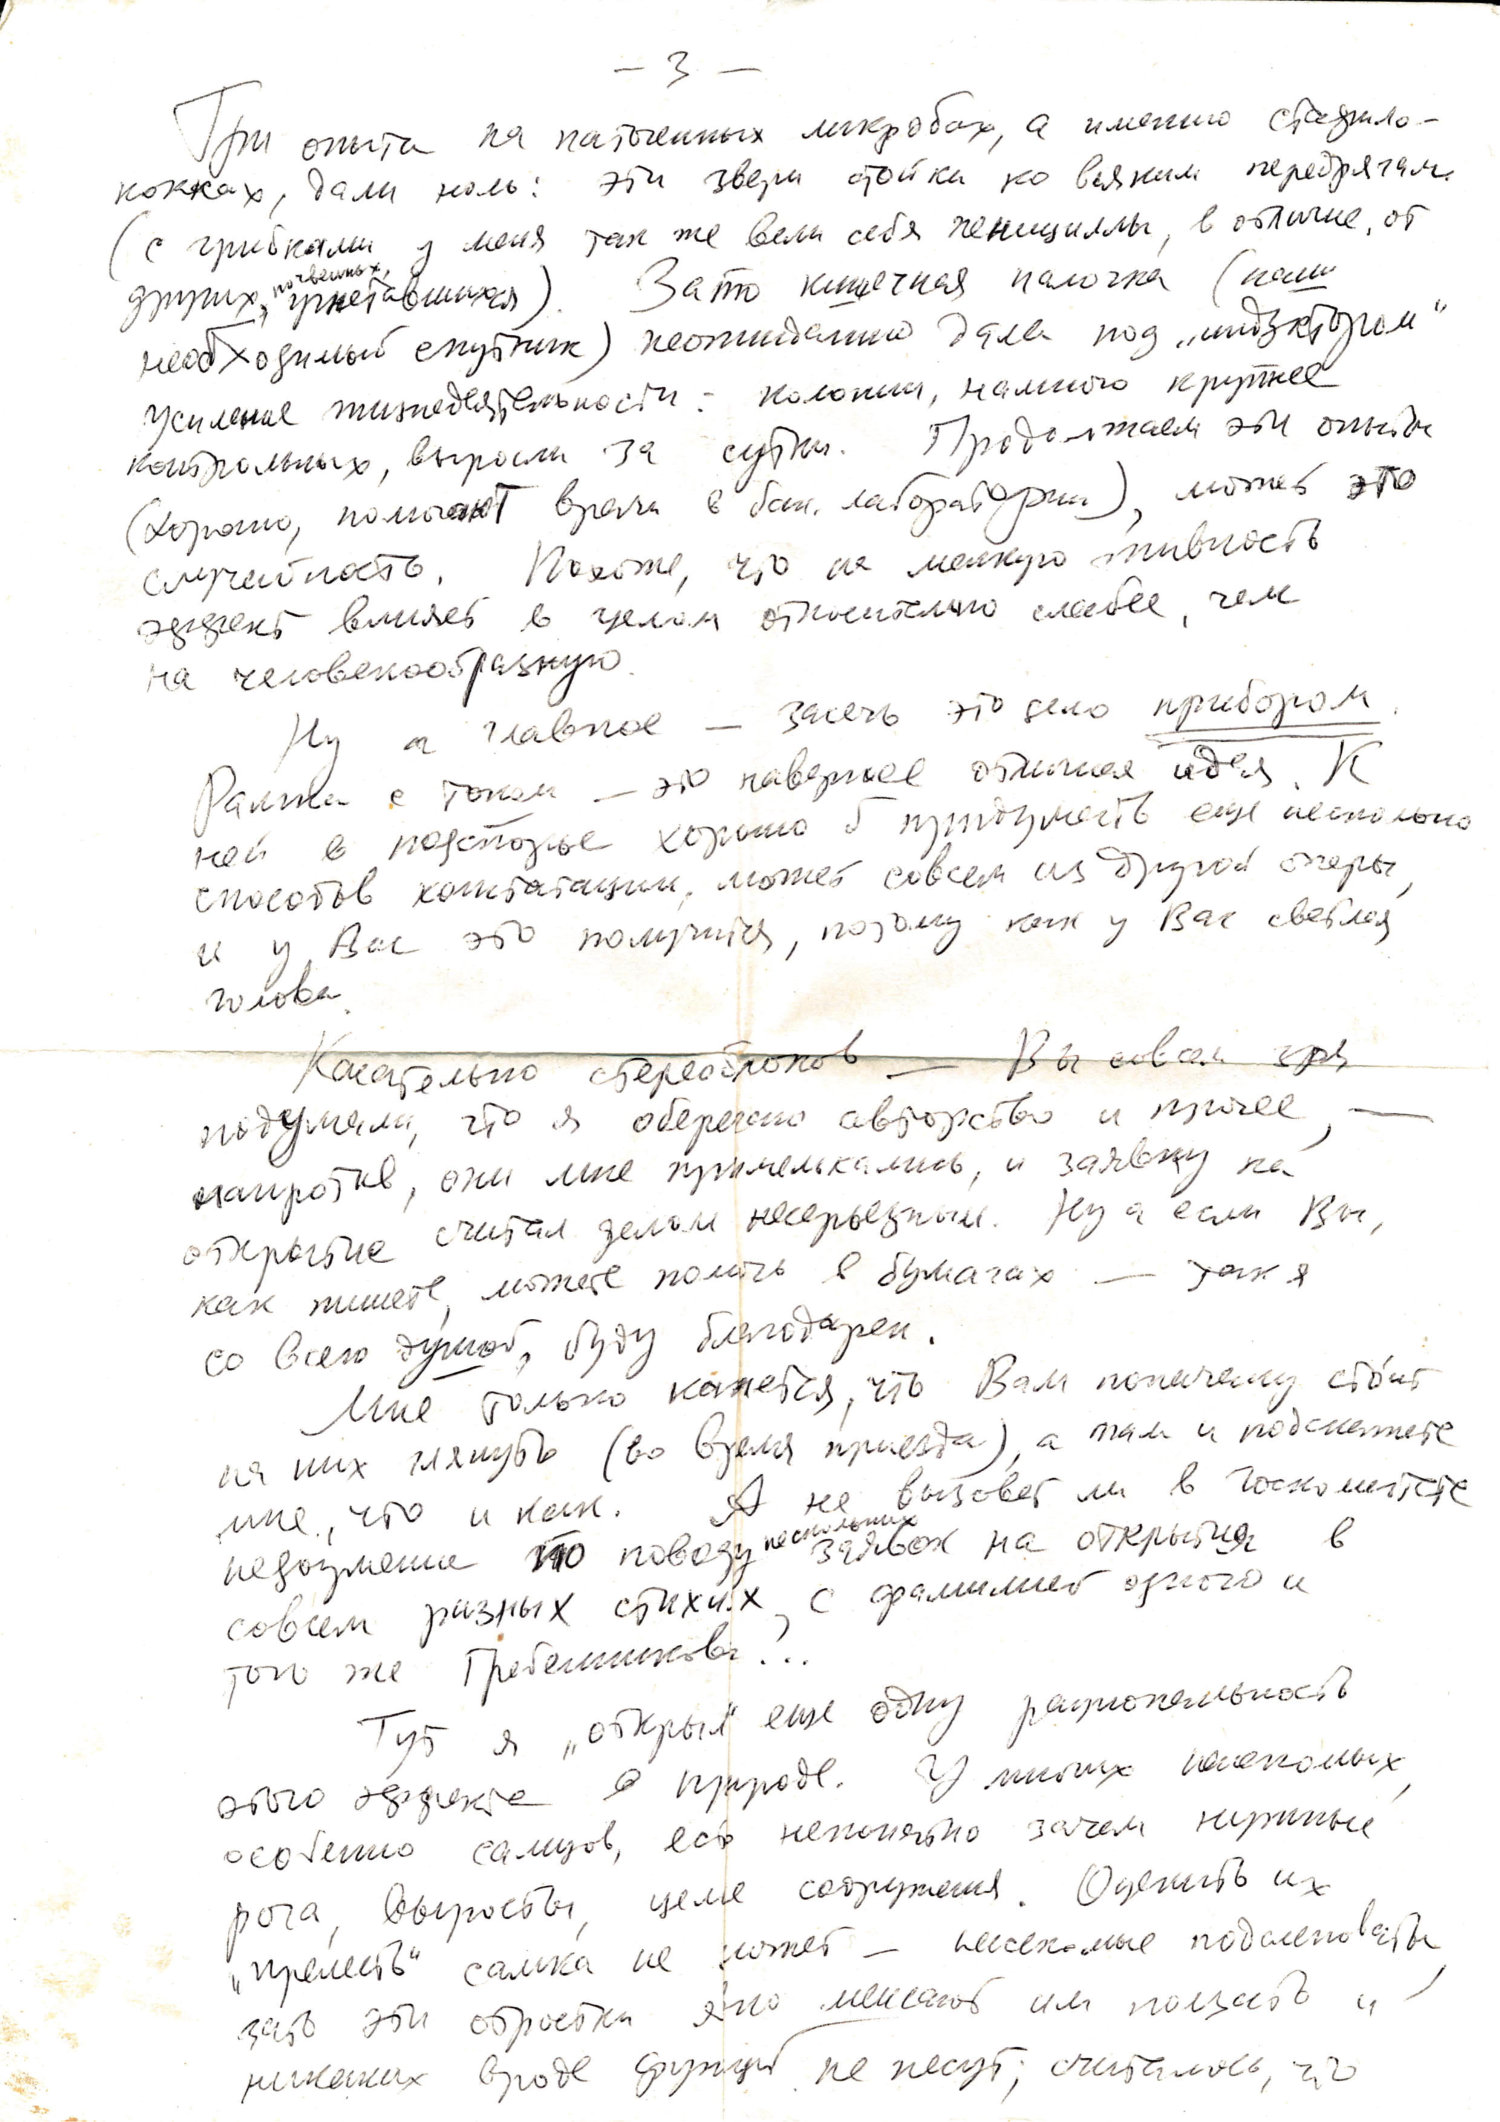 – 3 –
Три опыта на патогенных микробах, а именно стафило-
кокках, дали ноль: эти звери стойки ко всяким передрягам
(с грибками у меня так же вели себя пенициллы, в отличие от
других, почвенных, угнетавшихся). Зато кишечная палочка (наш
необходимый спутник) неожиданно дала под „индуктором“
усиление жизнедеятельности: колонии, намного крупнее
контрольных, выросли за сутки. Продолжаем эти опыты
(хорошо, помогают врачи в бак. лаборатории), может это
случайность. Похоже, что на мелкую живность
эффект влияет в целом относительно слабее, чем
на человекообразную.
Ну а главное – засечь это дело прибором.
Рамка с током – это наверное отличная идея. К
ней в подспорье хорошо б придумать еще несколько
способов констатации, может совсем из другой оперы,
и у Вас это получится, потому как у Вас светлая
голова.
Касательно стереоблоков – Вы совсем зря
подумали, что я оберегаю авторство и прочее, –
напротив, они мне примелькались, и заявку на
открытие считал делом несерьезным. Ну а если Вы,
как пишете, можете помочь в бумагах – так я
со всею душой, буду благодарен.
Мне только кажется, что Вам поначалу стоит
на них глянуть (во время приезда), а там и подскажете
мне, что и как. А не вызовет ли в Госкомитете
недоумение по поводу нескольких заявок на открытия в
совсем разных стихиях, с фамилией одного и
того же Гребенникова?..
Тут я „открыл“ еще одну рациональность
этого эффекта в природе. У многих насекомых,
особенно самцов, есть непонятно зачем нужные
рога, выросты, целые сооружения. Оценить их
„прелесть“ самка не может – насекомые подслеповаты,
зато эти отростки явно мешают им ползать и
никаких вроде функций не несут; считалось, что